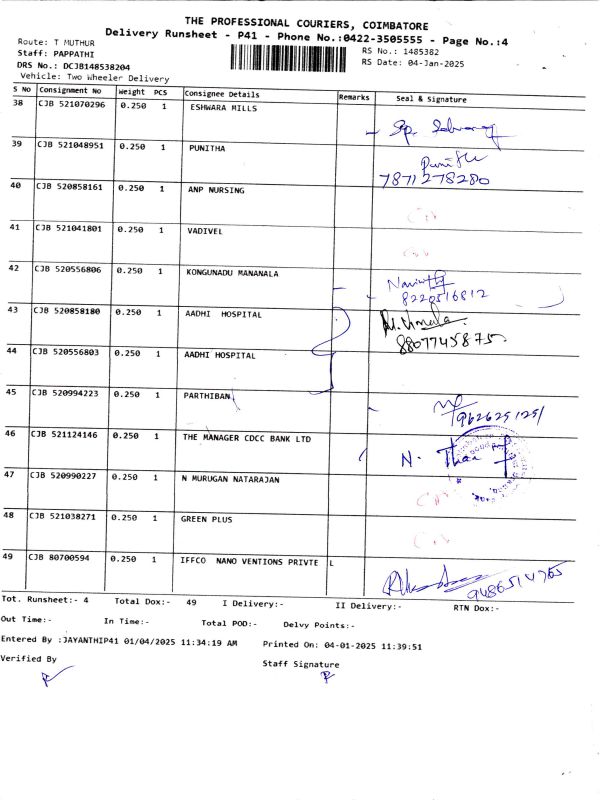 THE PROFESSIONAL COURIERS, COIMBATORE
Delivery Runsheet - P41 - Phone No.:0422-3505555 - Page No.:4
Route: T MUTHUR
Staff: PAPPATHI
DRS No.: DCJB148538204
Vehicle: Two Wheeler Delivery
RS No.: 1485382
RS Date: 04-Jan-2025
S No Consignment No Weight PCS Consignee Details Remarks Seal & Signature
38 CJB 521070296 0.250 1 ESHWARA MILLS
39 CJB 521048951 0.250 1 PUNITHA
7871278280
40 CJB 520858161 0.250 1 ANP NURSING
41 CJB 521041801 0.250 1 VADIVEL
42 CJB 520556806 0.250 1 KONGUNADU MANANALA
8220516812
43 CJB 520858180 0.250 1 AADHI HOSPITAL
8807745875
44 CJB 520556803 0.250 1 AADHI HOSPITAL
45 CJB 520994223 0.250 1 PARTHIBAN
9626251251
46 CJB 521124146 0.250 1 THE MANAGER CDCC BANK LTD
47 CJB 520990227 0.250 1 N MURUGAN NATARAJAN
48 CJB 521038271 0.250 1 GREEN PLUS
49 CJB 80700594 0.250 1 IFFCO NANO VENTIONS PRIVTE L
9486514765
Tot. Runsheet:- 4 Total Dox:- 49 I Delivery:- II Delivery:- RTN Dox:-
Out Time:- In Time:- Total POD:- Delvy Points:-
Entered By :JAYANTHIP41 01/04/2025 11:34:19 AM Printed On: 04-01-2025 11:39:51
Verified By Staff Signature